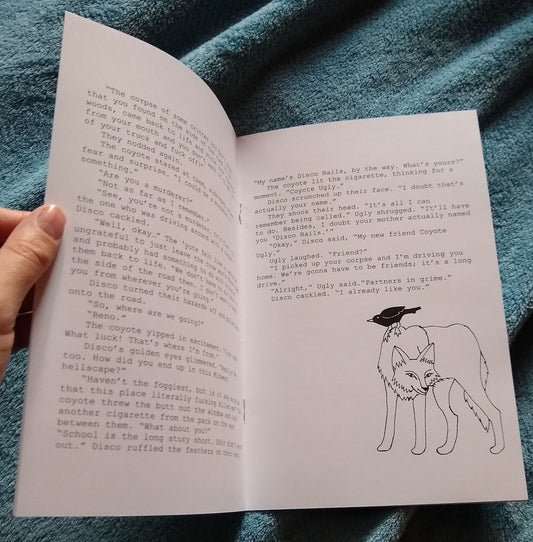 "The corpse of some critter
that you found on the side of
woods, came back to life
from your mouth and you don't
of your truck and fuck off!"
They nodded again.
The coyote stared at them,
fear and surprise. "I could
something."
"Are you a murderer?"
"Not as far as I remember."
"See, you're not a murderer.
the one who was driving around
Disco cackled.
"Well, okay." The 'yote felt
ungrateful to just leave the
and probably had something to do with
them back to life. "We don't have to
the side of the road then. I don't
you from wherever you're going."
Disco turned their hazards off and
onto the road.
"So, where are we going?"
"Reno."
The coyote yipped in excitement.
What luck! That's where I'm from."
Disco's golden eyes glimmered.
too. How did you end up in this
hellscape?"
"Haven't the foggiest, but is it
that this place literally fucking killed me?"
coyote threw the butt out the window and
another cigarette from the pack on the
between them. "What about you?"
"School is the long story short. Shit didn't
out." Disco ruffled the feathers on their
"My name's Disco Nails, by the way. What's yours?"
The coyote lit the cigarette, thinking for a
moment. "Coyote Ugly."
Disco scrunched up their face. "I doubt that's
actually your name."
They shook their head. "It's all I can
remember being called." Ugly shrugged. "It'll have
to do. Besides, I doubt your mother actually named
you 'Disco Nails.'"
"Okay," Disco said, "My new friend Coyote
Ugly."
Ugly laughed. "Friend?"
"I picked up your corpse and I'm driving you
home. We're gonna have to be friends; it's a long
drive."
"Alright," Ugly said."Partners in grime."
Disco cackled. "I already like you."